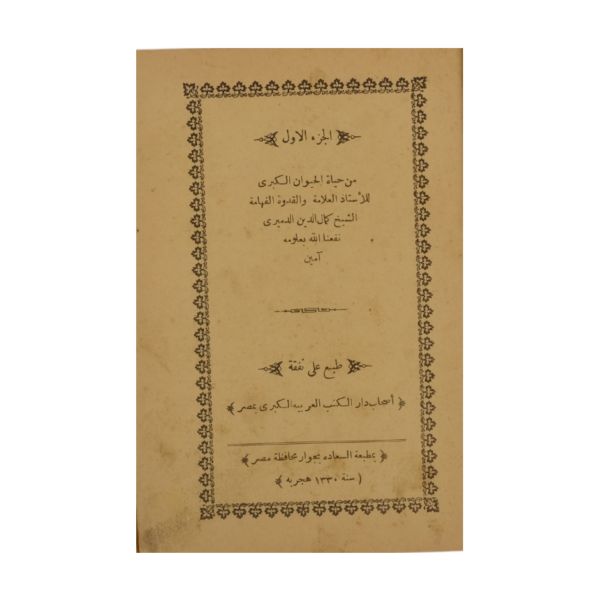 الجزء الاول
من حياة الحيوان الكبرى
للأستاذ العلامة والقدوة الفهامة
الشيخ كمال الدين الدميرى
نفعنا الله بعلومه
آمين
طبع على نفقة
أصحاب دار الكتب العربيه الكبرى بمصر
بمطبعة السعاده بجوار محافظة مصر
( سنة ١٣٣٠ هجريه )